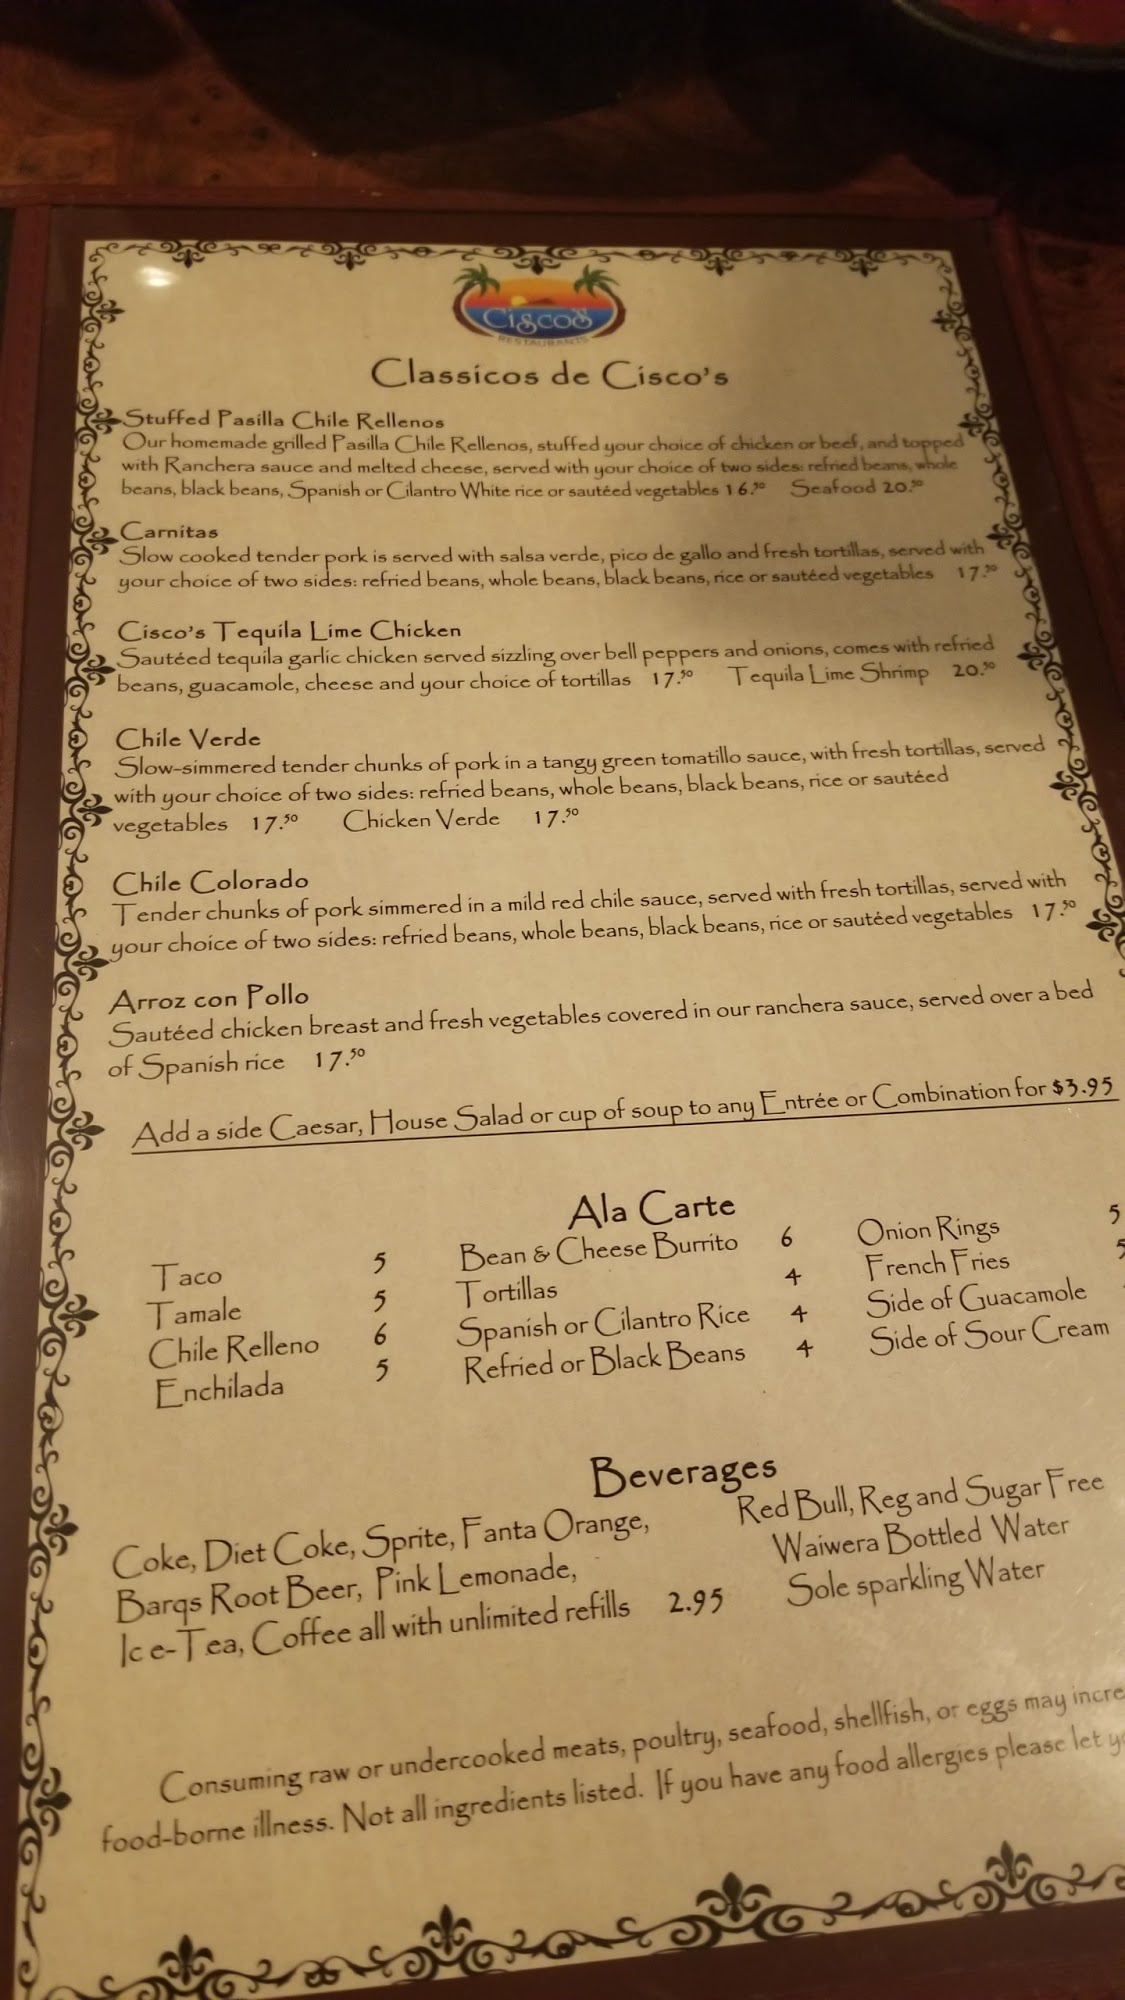 Cisco's
RESTAURANTS
Classicos de Cisco's
Stuffed Pasilla Chile Rellenos
Our homemade grilled Pasilla Chile Rellenos, stuffed your choice of chicken or beef, and topped
with Ranchera sauce and melted cheese, served with your choice of two sides: refried beans, whole
beans, black beans, Spanish or Cilantro White rice or sautéed vegetables 16.50 Seafood 20.50
Carnitas
Slow cooked tender pork is served with salsa verde, pico de gallo and fresh tortillas, served with
your choice of two sides: refried beans, whole beans, black beans, rice or sautéed vegetables 17.50
Cisco's Tequila Lime Chicken
Sautéed tequila garlic chicken served sizzling over bell peppers and onions, comes with refried
beans, guacamole, cheese and your choice of tortillas 17.50 Tequila Lime Shrimp 20.50
Chile Verde
Slow-simmered tender chunks of pork in a tangy green tomatillo sauce, with fresh tortillas, served
with your choice of two sides: refried beans, whole beans, black beans, rice or sautéed
vegetables 17.50 Chicken Verde 17.50
Chile Colorado
Tender chunks of pork simmered in a mild red chile sauce, served with fresh tortillas, served with
your choice of two sides: refried beans, whole beans, black beans, rice or sautéed vegetables 17.50
Arroz con Pollo
Sautéed chicken breast and fresh vegetables covered in our ranchera sauce, served over a bed
of Spanish rice 17.50
Add a side Caesar, House Salad or cup of soup to any Entrée or Combination for $3.95
Ala Carte
Taco 5
Tamale 5
Chile Relleno 6
Enchilada 5
Bean & Cheese Burrito 6
Tortillas 4
Spanish or Cilantro Rice 4
Refried or Black Beans 4
Onion Rings 5
French Fries 5
Side of Guacamole
Side of Sour Cream
Beverages
Coke, Diet Coke, Sprite, Fanta Orange,
Barqs Root Beer, Pink Lemonade,
Ice-Tea, Coffee all with unlimited refills 2.95
Red Bull, Reg and Sugar Free
Waiwera Bottled Water
Sole sparkling Water
Consuming raw or undercooked meats, poultry, seafood, shellfish, or eggs may incre
food-borne illness. Not all ingredients listed. If you have any food allergies please let y